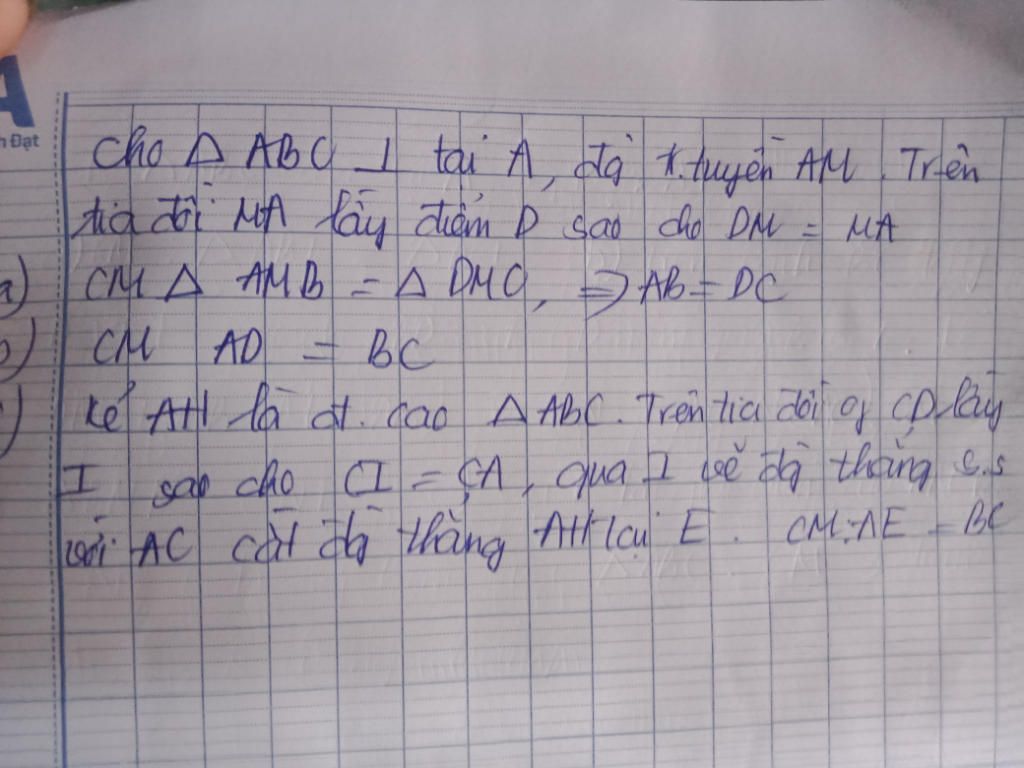 A
h Đạt
Cho Δ ABC ⊥ tại A, đg tr.tuyến AM. Trên
tia đối MA lấy điểm D sao cho DM = MA
a) CM Δ AMB = Δ DMC, => AB = DC
b) CM AD = BC
c) kẻ AH là đ. cao Δ ABC. Trên tia đối of CD lấy
I sao cho CI = CA, qua I vẽ đg thẳng s.s
với AC cắt đg thẳng AH tại E. CM: AE = BC